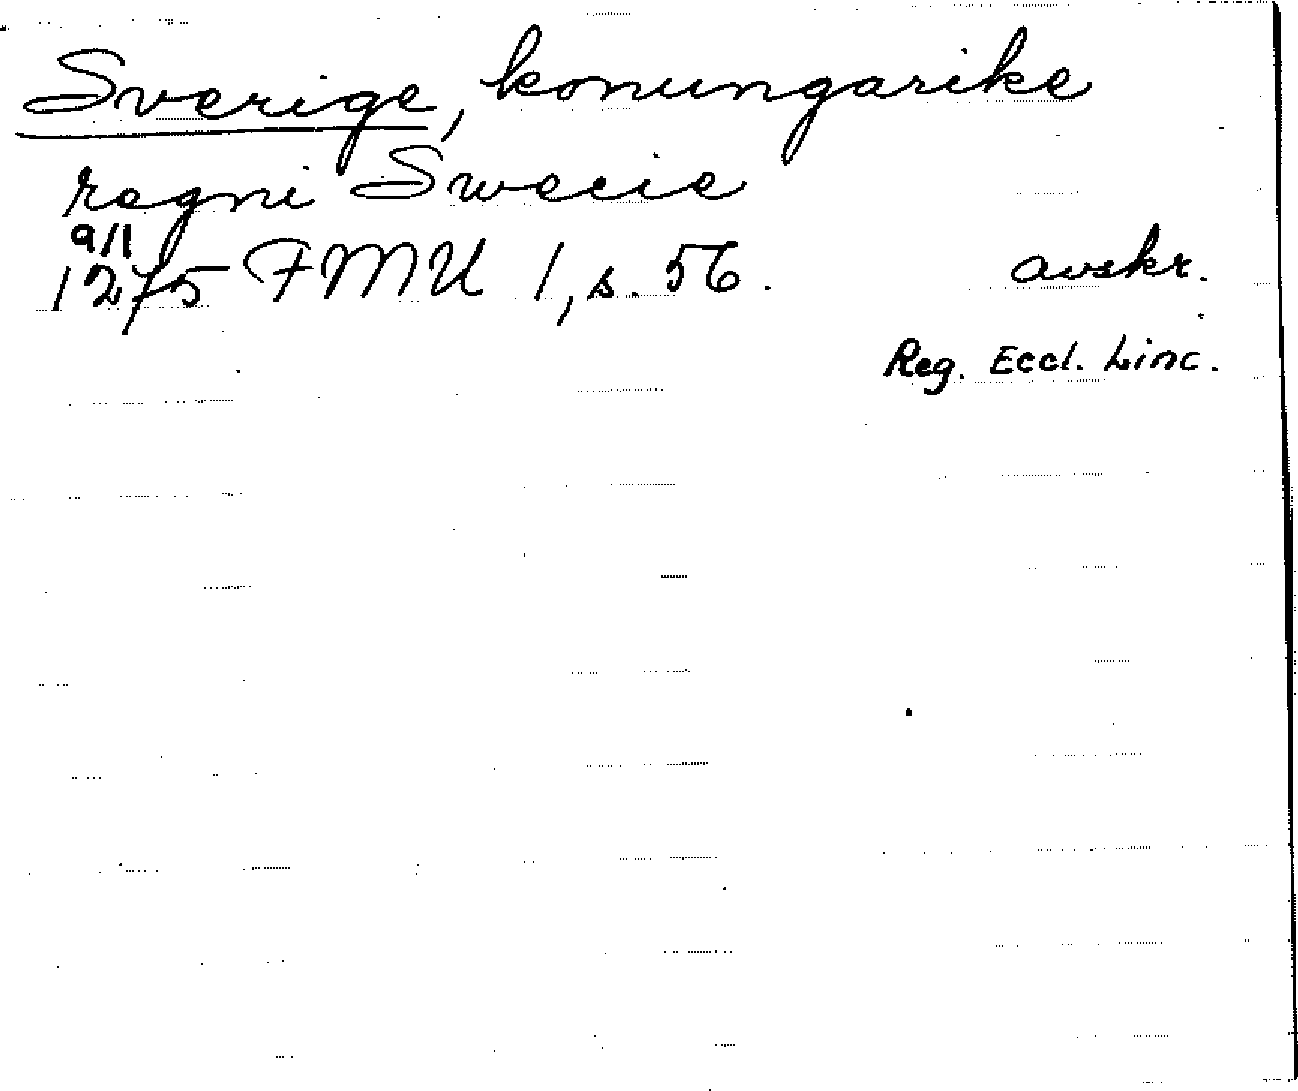 Sverige, konungarike
regni Swecie
9/1
1275 FMU 1, s. 56. avskr.
Reg. Eccl. Linc.